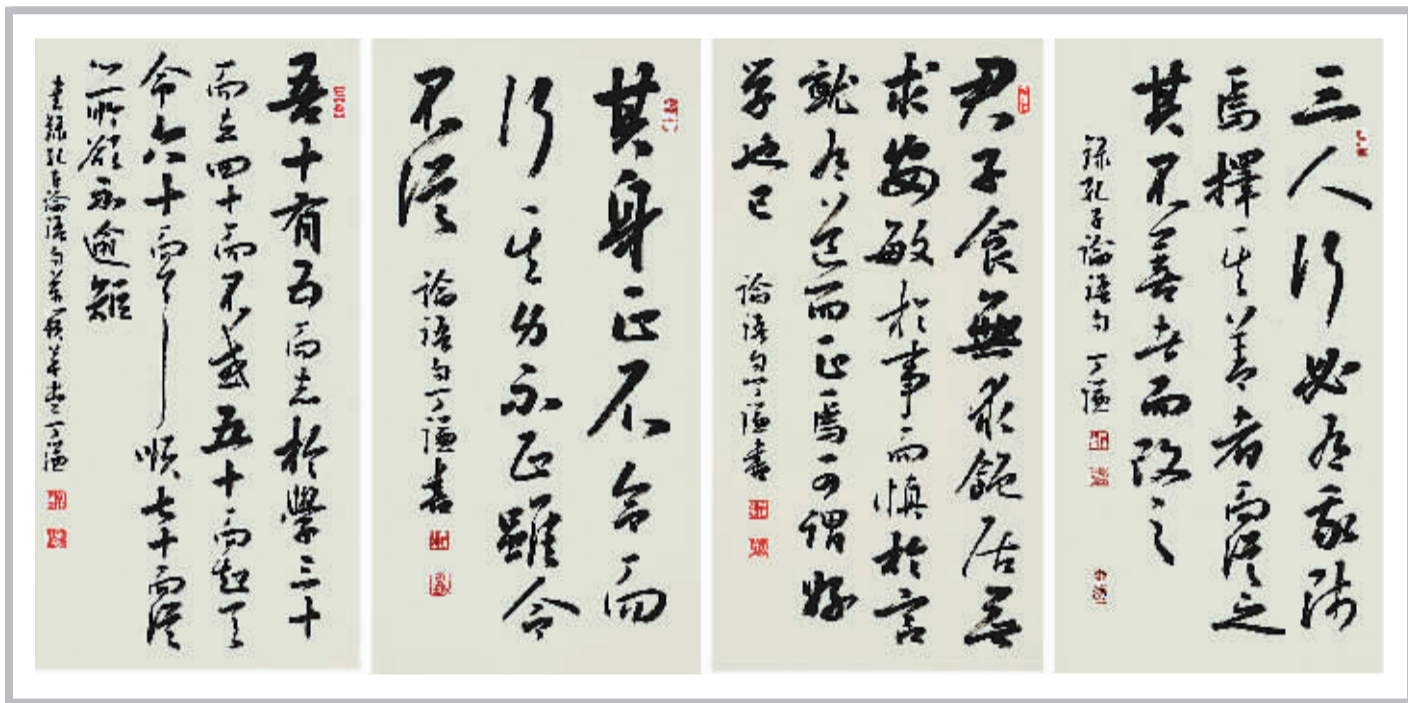 三人行必有我師
焉擇其善者而從之
其不善者而改之
錄孔子論語句 丁謙
君子食無求飽居無
求安敏於事而慎於言
就有道而正焉可謂好
学也已 論語句丁謙書
其身正不令而
行其身不正雖令
不從 論語句丁謙書
吾十有五而志於學三十
而立四十而不惑五十而知天
命六十而耳順七十而從
心所欲不逾矩
書錄孔丘論語句 草堂丁謙